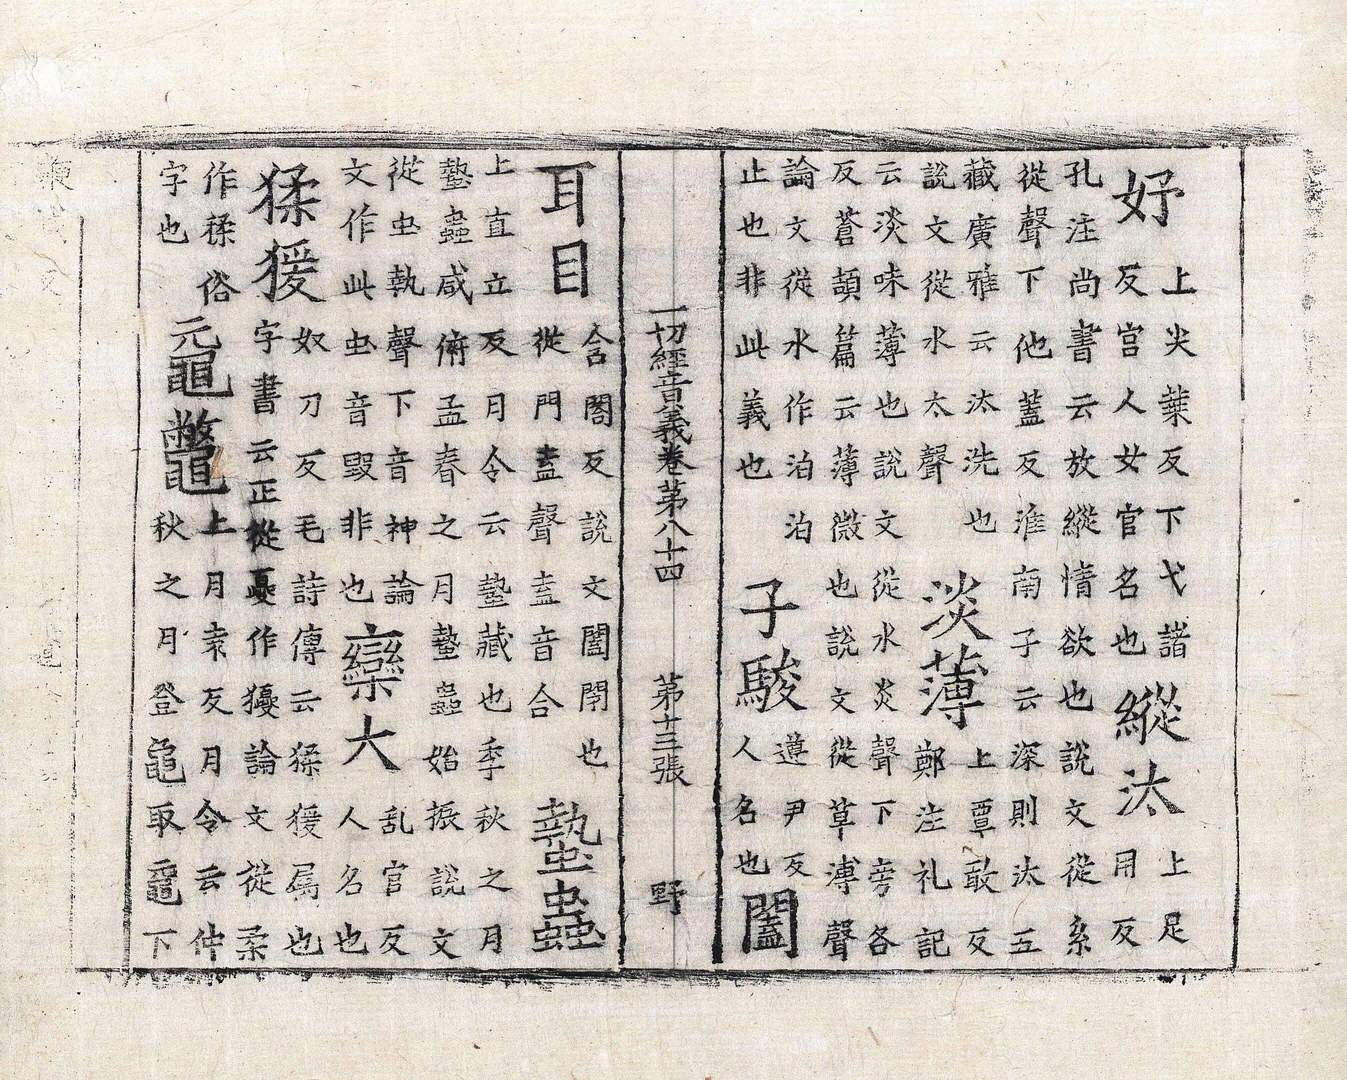 妤
上尖葉反下弋諸
反官人女官名也
縱汰
上足
用反
孔注尚書云放縱情欲也說文從糸
從聲下他蓋反淮南子云深則汰五
藏廣雅云汰洗也
說文從水太聲
淡薄
上覃敢反
鄭注礼記
云淡味薄也說文從水炎聲下旁各
反蒼頡篇云薄微也說文從草溥聲
論文從水作泊泊
止也非此義也
子駿
遵尹反
人名也
闔
一切經音義卷第八十四 第十三張 野
耳目
合閤反說文闔閇也
從門盍聲盍音合
蟄蟲
上直立反月令云蟄藏也季秋之月
蟄蟲咸俯孟春之月蟄蟲始振說文
從虫執聲下音神論
文作此虫音毀非也
欒大
乱官反
人名也
猱猨
奴刀反毛詩傳云猱猨屬也
字書云正從憂作獶論文從柔
作猱俗
字也
黿鼈
上月袁反月令云仲
秋之月登龜取黿下